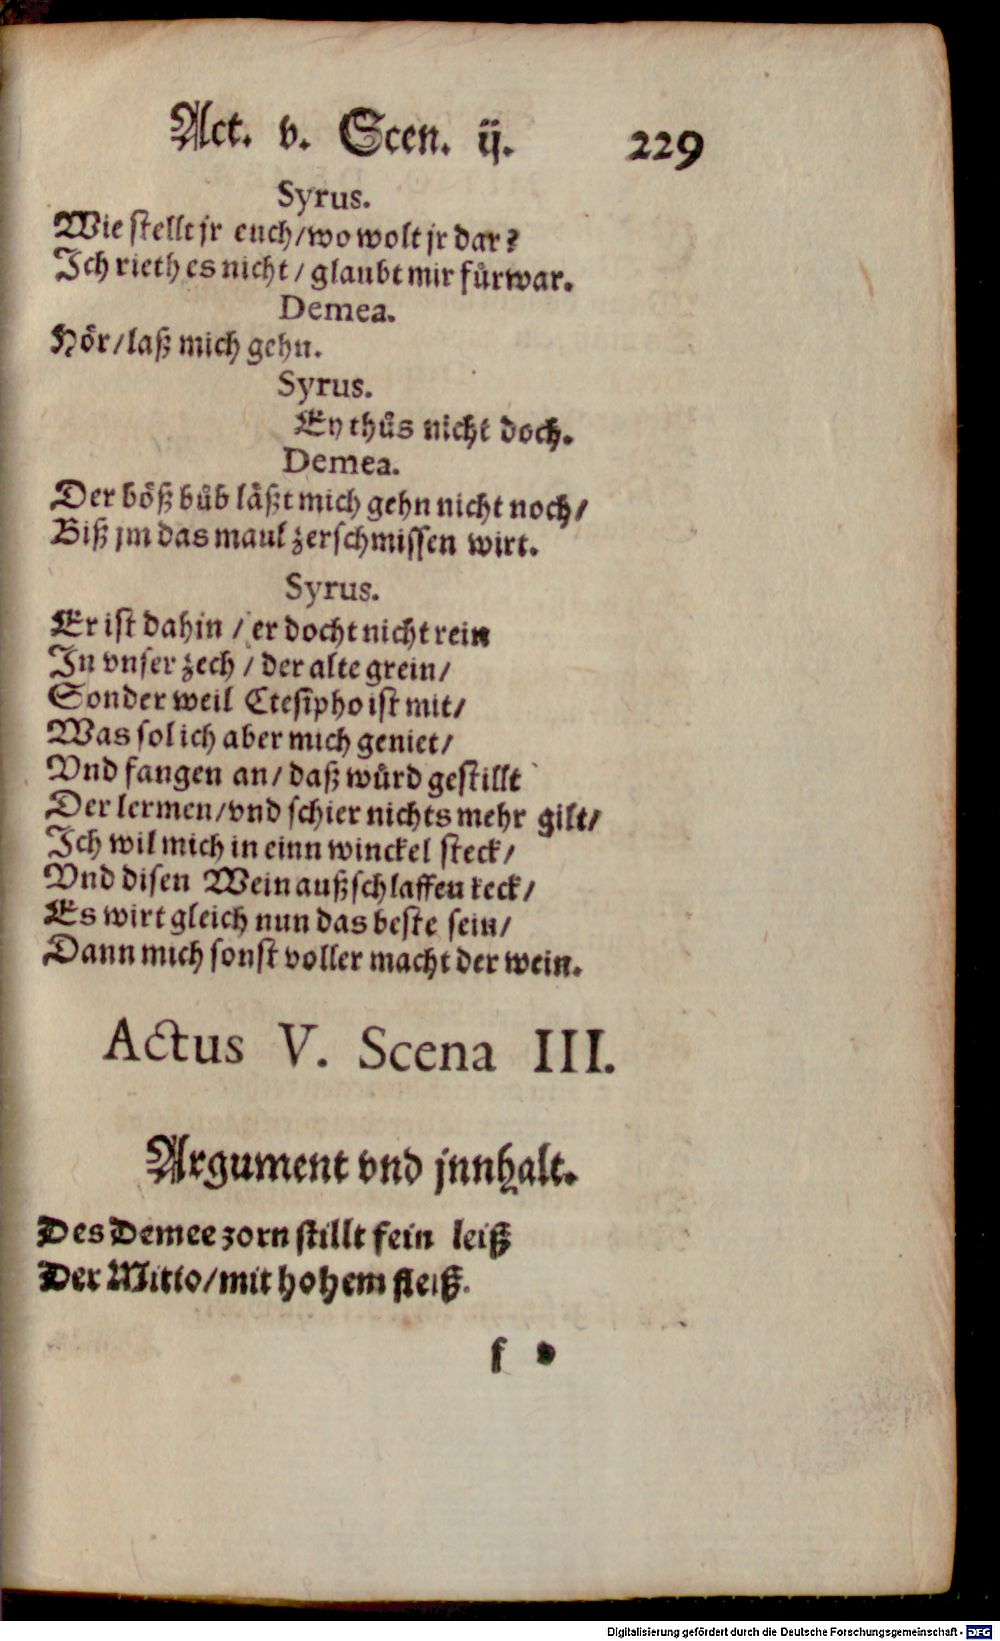 Act. v. Scen. ij. 229
Syrus.
Wie stellt jr euch/wo wolt jr dar?
Ich rieth es nicht/ glaubt mir fůrwar.
Demea.
Hoͤr/laß mich gehn.
Syrus.
Ey thůs nicht doch.
Demea.
Der boͤß bůb laͤßt mich gehn nicht noch/
Biß jm das maul zerschmissen wirt.
Syrus.
Er ist dahin / er docht nicht rein
In vnser zech / der alte grein/
Sonder weil Ctesipho ist mit/
Was sol ich aber mich geniet/
Vnd fangen an/ daß wůrd gestillt
Der lermen/vnd schier nichts mehr gilt/
Ich wil mich in einn winckel steck/
Vnd disen Wein außschlaffen keck/
Es wirt gleich nun das beste sein/
Dann mich sonst voller macht der wein.
Actus V. Scena III.
Argument vnd jnnhalt.
Des Demee zorn stillt fein leiß
Der Mitio/mit hohem fleiß.
f
Digitalisierung gefördert durch die Deutsche Forschungsgemeinschaft - DFG